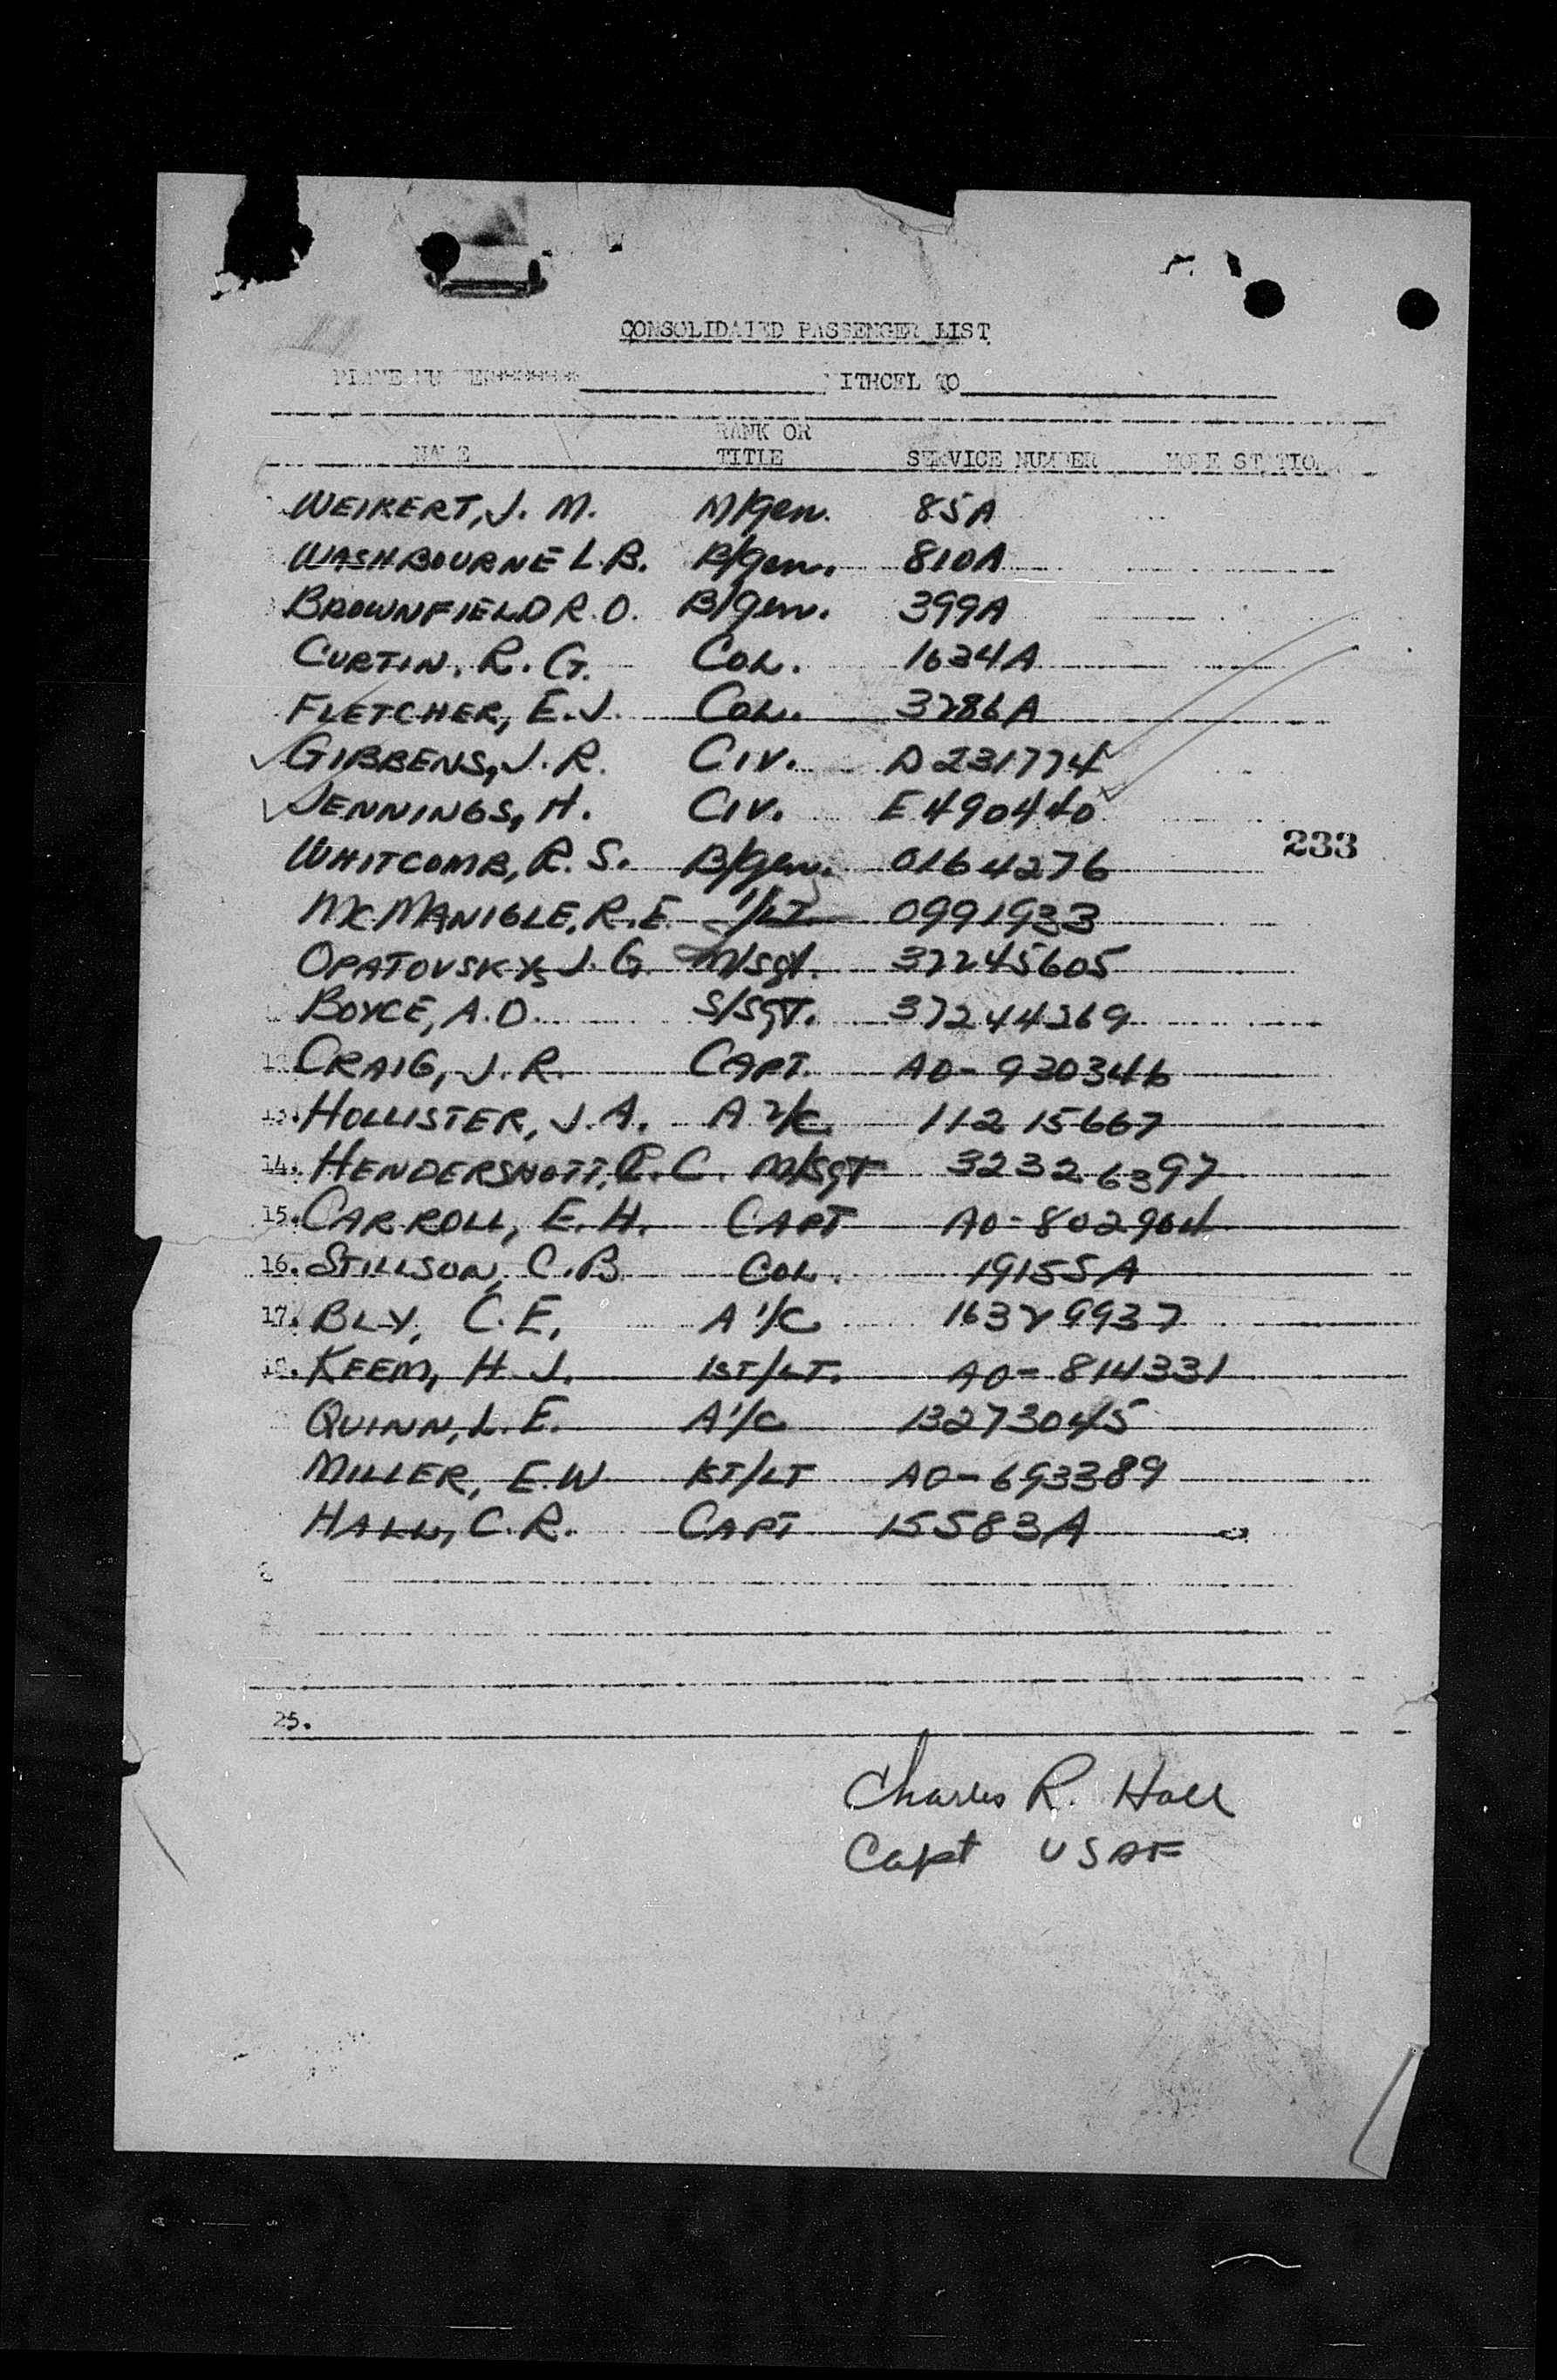 CONSOLIDATED PASSENGER LIST
TO
NAME RANK OR TITLE SERVICE NUMBER HOME STATION
WEIKERT, J. M. M/Gen. 85A
WASHBOURNE L.B. B/Gen. 810A
BROWNFIELD R.O. B/Gen. 399A
CURTIN, R. G. COL. 1634A
FLETCHER, E.J. COL. 3286A
GIBBENS, J.R. CIV. D231774
JENNINGS, H. CIV. E490440
WHITCOMB, R. S. B/Gen. 0164276
233
McMANIGLE, R.E. 1/LT 0991933
OPATOVSKY, J. G. M/Sgt. 37245605
BOYCE, A.D. S/SGT. 37244269
12. CRAIG, J.R. CAPT. AO-930346
13. HOLLISTER, J.A. A 2/C 11215667
14. HENDERSHOTT, R.C. M/SGT 32326397
15. CARROLL, E. H. CAPT AO-802904
16. STILLSON, C.B. COL. 19155A
17. BLY, C.E, A 1/C 16329937
18. KEEM, H.J. 1ST/LT. AO-814331
QUINN, L.E. A1/C 13273045
MILLER, E.W 1ST/LT AO-693389
HALL, C.R. CAPT 15583A
25.
Charles R. Hall
Capt USAF